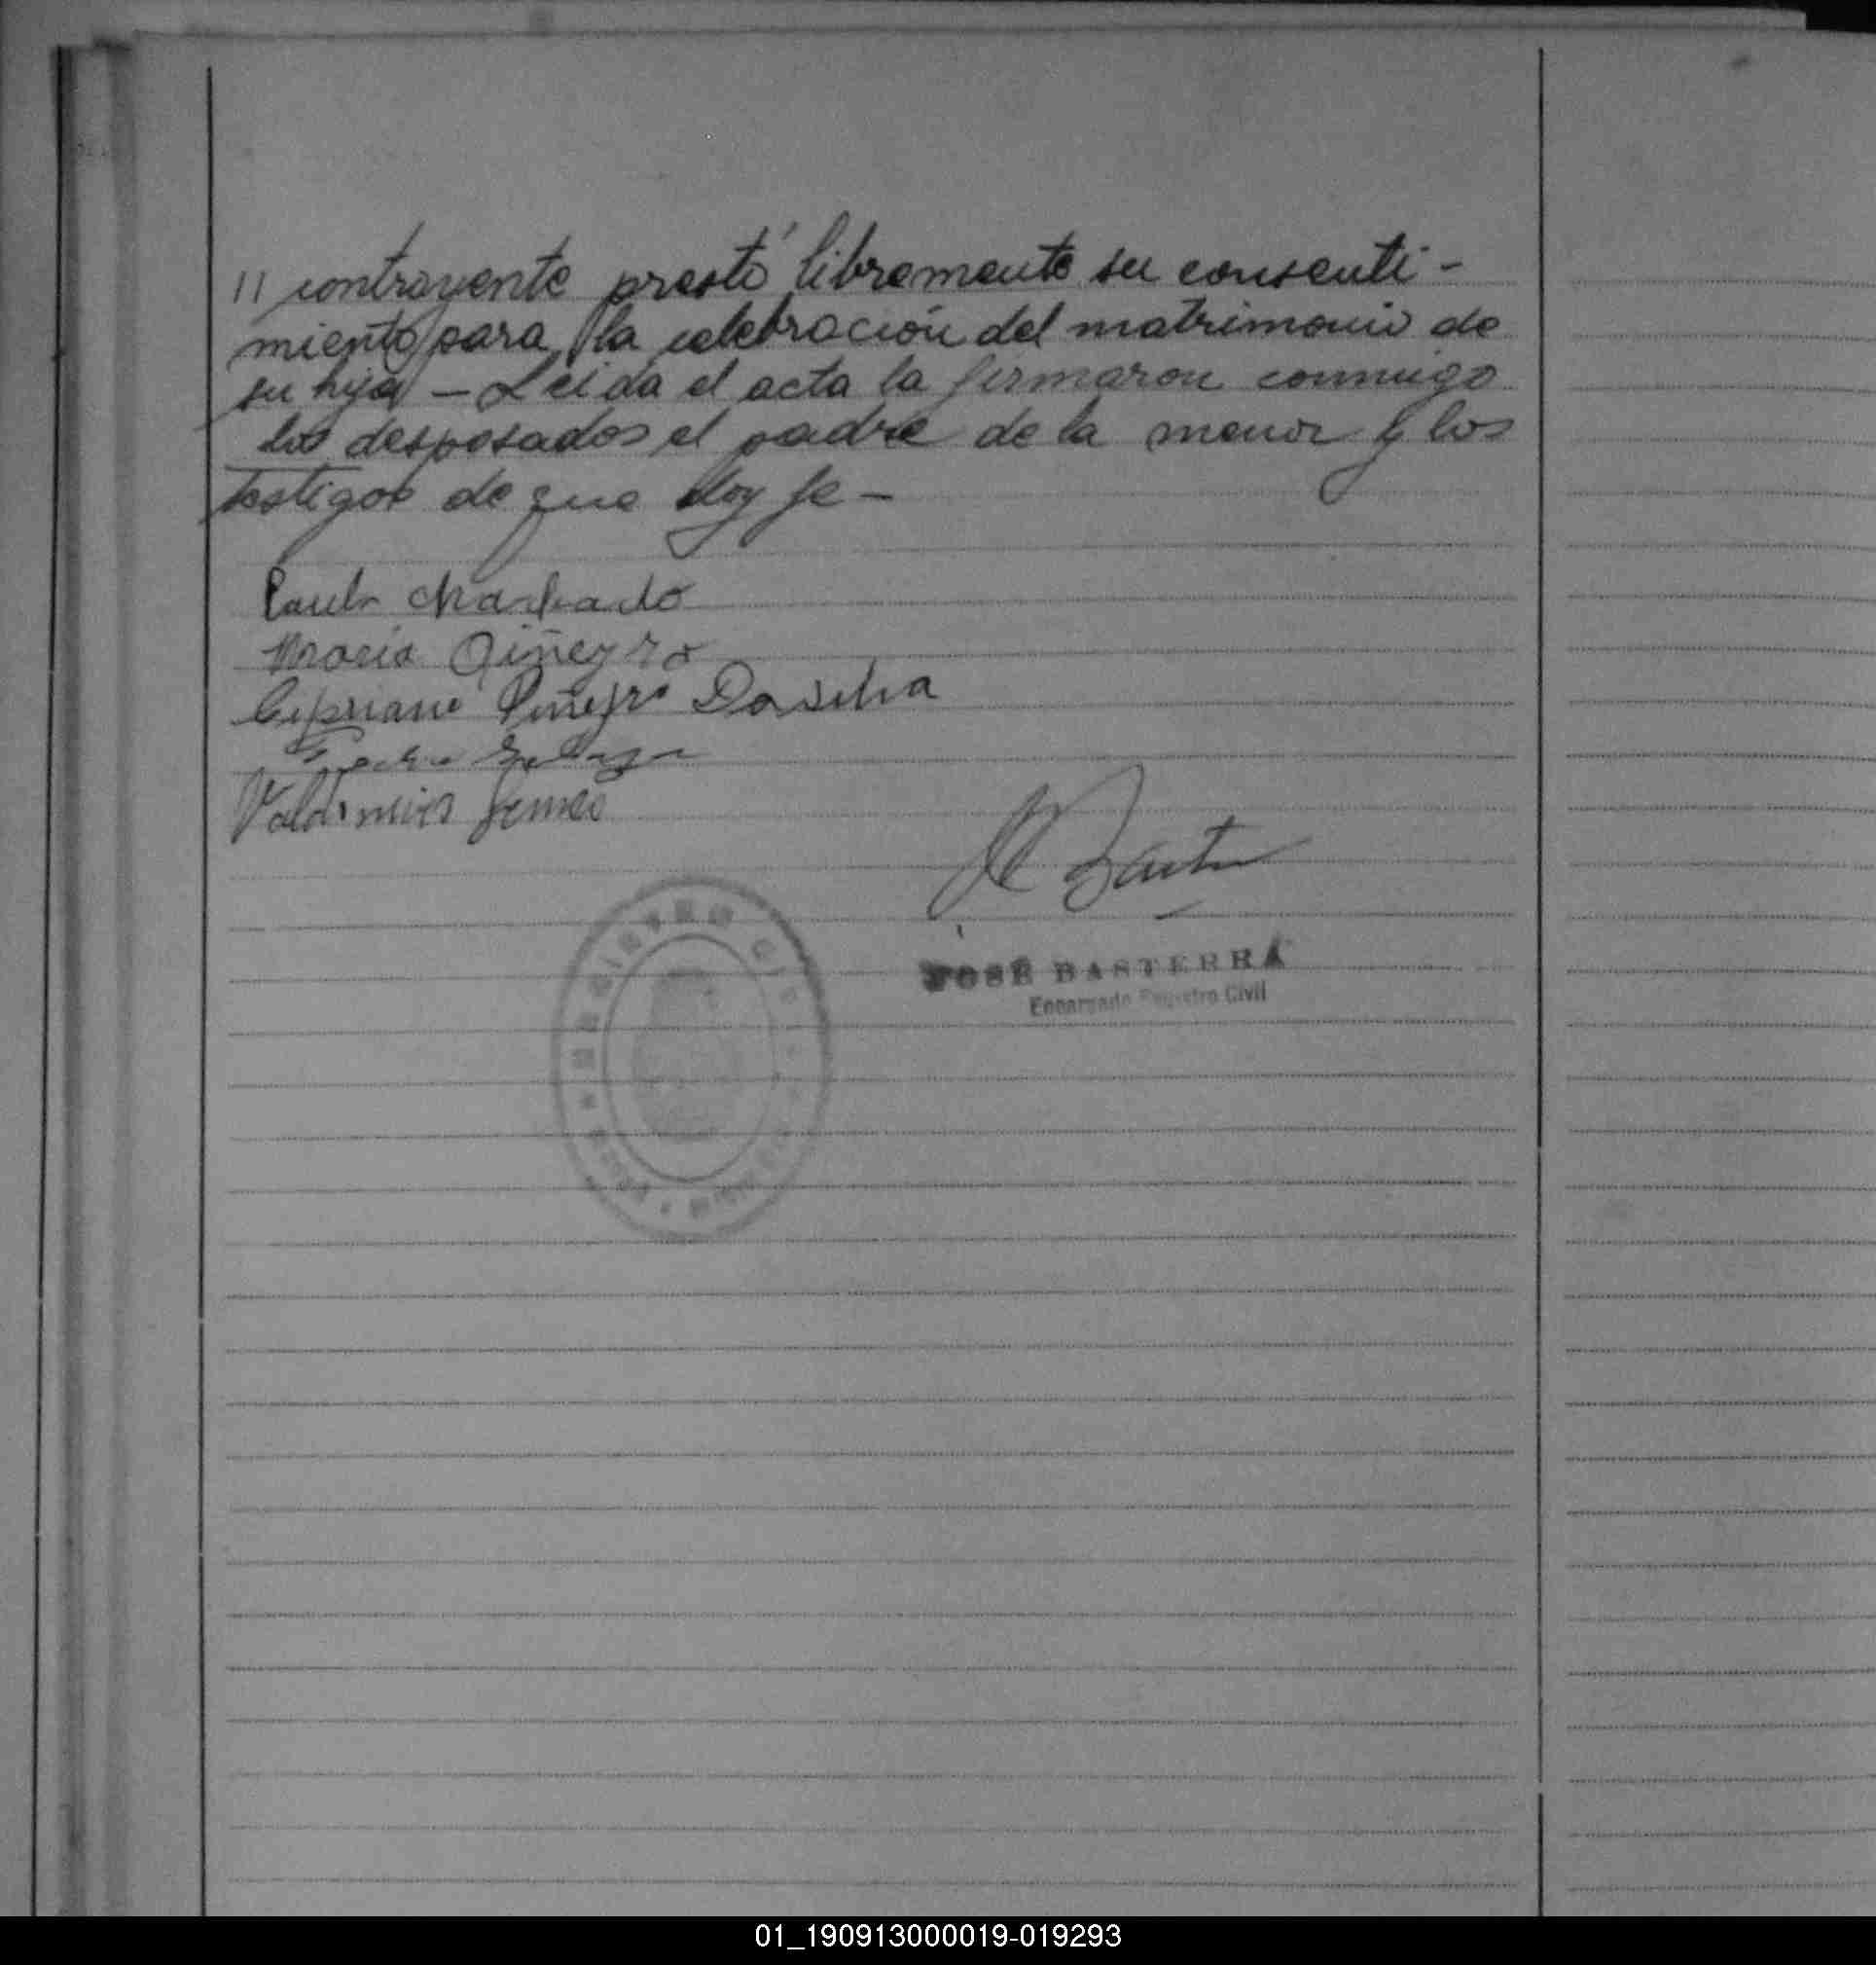 11 contrayente prestó libremente su consenti-
miento para la celebración del matrimonio de
su hija — Leida el acta la firmaron conmigo
los desposados el padre de la menor y los
testigos de que doy fe —
Paulo Machado
Maria Piñeyro
Cipriano Piñeyro Dasilva
Valdemiro Gomes
JOSÉ BASTERRA
Encargado Registro Civil
01_190913000019-019293